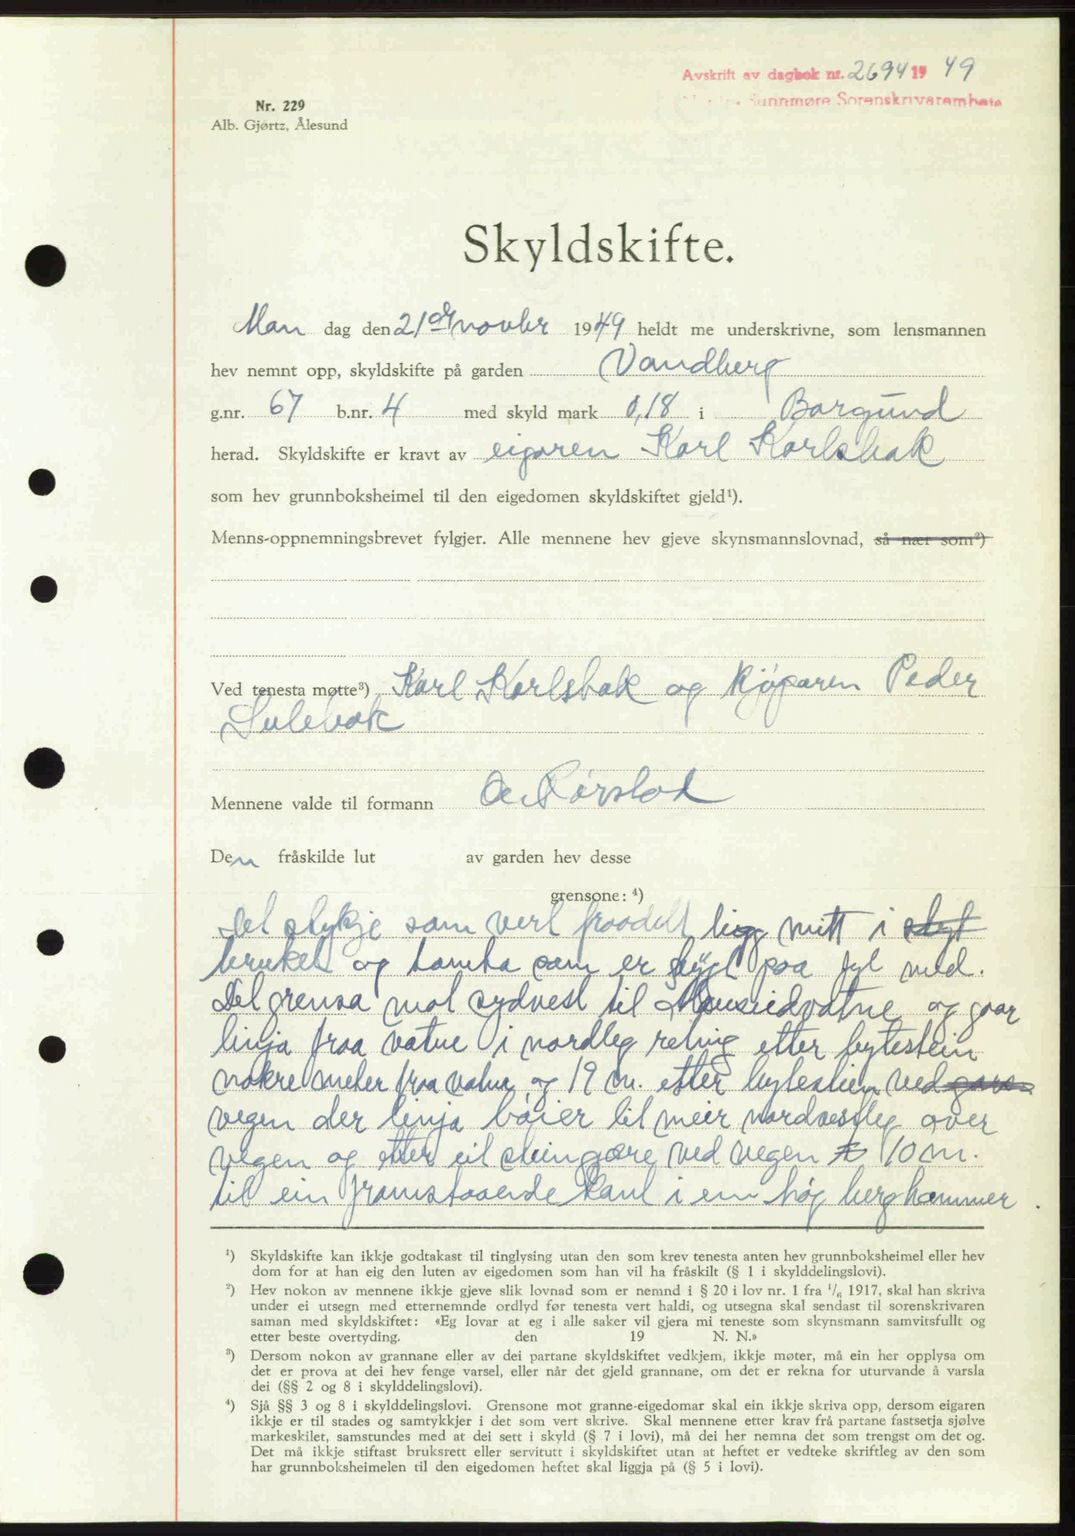 Avskrift av dagbok nr. 2694 19 49
Sunnmøre Sorenskrivarembete
Nr. 229
Alb. Gjørtz, Ålesund
Skyldskifte.
Man dag den 21de novbr 1949 heldt me underskrivne, som lensmannen
hev nemnt opp, skyldskifte på garden Vandberg
g.nr. 67 b.nr. 4 med skyld mark 0,18 i Borgund
herad. Skyldskifte er kravt av eigaren Karl Karlsbak
som hev grunnboksheimel til den eigedomen skyldskiftet gjeld¹).
Menns-oppnemningsbrevet fylgjer. Alle mennene hev gjeve skynsmannslovnad, så nær som²)
Ved tenesta møtte³) Karl Karlsbak og kjøparen Peder
Sulebak
Mennene valde til formann
Den fråskilde lut av garden hev desse
grensone: ⁴)
Del stykje som vert fraadelt ligg mitt i
bruket og tomta som er bygt paa fyl med.
Det grensa mot sydvest til vatne og gaar
linja fraa vatne i nordleg retning etter bytestein
nokre meter fraa vatne og 19 m. etter bytestein ved
vegen der linja bøier til meir nordvestleg over
vegen og etter eit steingjære ved vegen 10 m.
til ein framstaaende kant i ein høg berghammer.
¹) Skyldskifte kan ikkje godtakast til tinglysing utan den som krev tenesta anten hev grunnboksheimel eller hev
dom for at han eig den luten av eigedomen som han vil ha fråskilt (§ 1 i skylddelingslovi).
²) Hev nokon av mennene ikkje gjeve slik lovnad som er nemnd i § 20 i lov nr. 1 fra ¹/₆ 1917, skal han skriva
under ei utsegn med etternemnde ordlyd før tenesta vert haldi, og utsegna skal sendast til sorenskrivaren
saman med skyldskiftet: «Eg lovar at eg i alle saker vil gjera mi teneste som skynsmann samvitsfullt og
etter beste overtyding. den 19 N. N.»
³) Dersom nokon av grannane eller av dei partane skyldskiftet vedkjem, ikkje møter, må ein her opplysa om
det er prova at dei hev fenge varsel, eller når det gjeld grannane, om det er rekna for uturvande å varsla
dei (§§ 2 og 8 i skylddelingslovi).
⁴) Sjå §§ 3 og 8 i skylddelingslovi. Grensone mot granne-eigedomar skal ein ikkje skriva opp, dersom eigaren
ikkje er til stades og samtykkjer i det som vert skrive. Skal mennene etter krav frå partane fastsetja sjølve
markeskilet, samstundes med at dei sett i skyld (§ 7 i lovi), må dei her nemna det som trengst om det og.
Det må ikkje stiftast bruksrett eller servitutt i skyldskiftet utan at heftet er vedteke skriftleg av den som
har grunnboksheimelen til den eigedomen heftet skal liggja på (§ 5 i lovi).